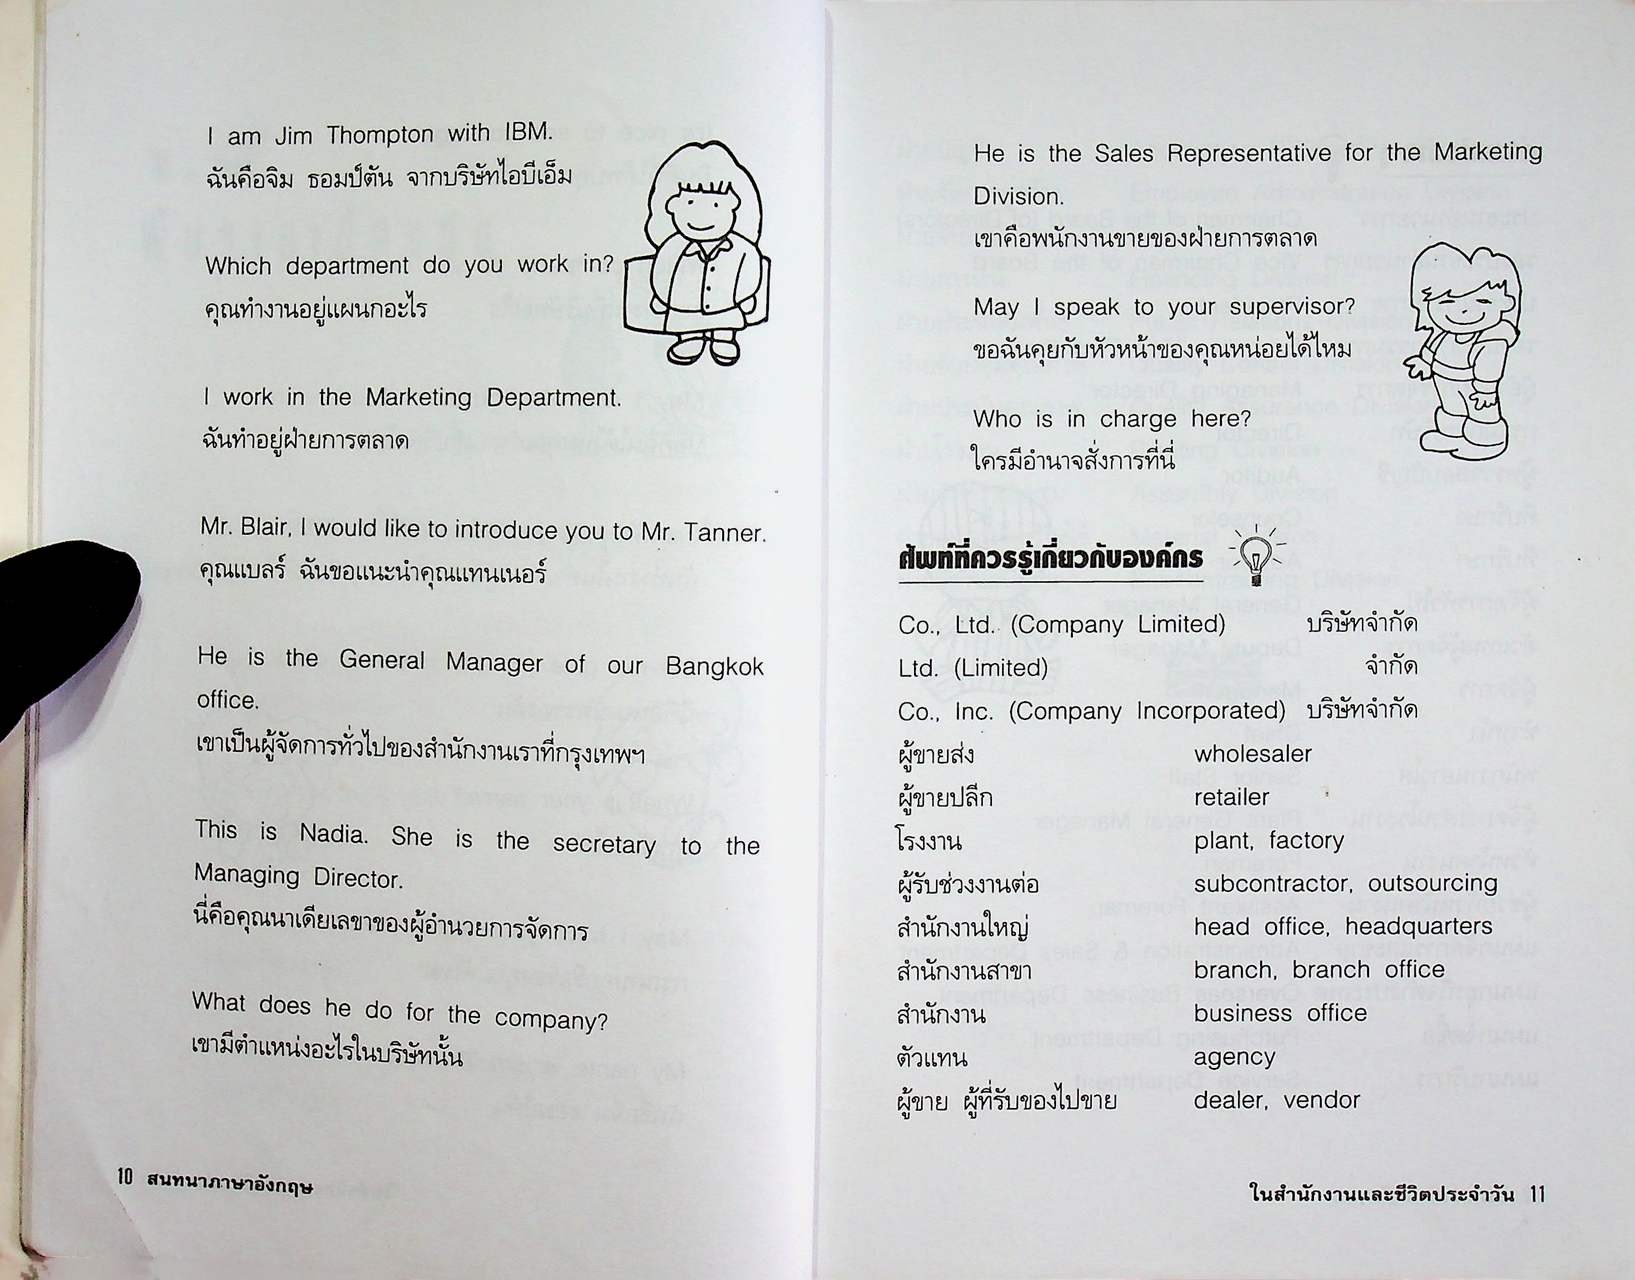 I am Jim Thompton with IBM.
ฉันคือจิม ธอมป์ตัน จากบริษัทไอบีเอ็ม
Which department do you work in?
คุณทำงานอยู่แผนกอะไร
I work in the Marketing Department.
ฉันทำอยู่ฝ่ายการตลาด
Mr. Blair, I would like to introduce you to Mr. Tanner.
คุณแบลร์ ฉันขอแนะนำคุณแทนเนอร์
He is the General Manager of our Bangkok
office.
เขาเป็นผู้จัดการทั่วไปของสำนักงานเราที่กรุงเทพฯ
This is Nadia. She is the secretary to the
Managing Director.
นี่คือคุณนาเดียเลขาของผู้อำนวยการจัดการ
What does he do for the company?
เขามีตำแหน่งอะไรในบริษัทนั้น
10 สนทนาภาษาอังกฤษ
He is the Sales Representative for the Marketing
Division.
เขาคือพนักงานขายของฝ่ายการตลาด
May I speak to your supervisor?
ขอฉันคุยกับหัวหน้าของคุณหน่อยได้ไหม
Who is in charge here?
ใครมีอำนาจสั่งการที่นี่
ศัพท์ที่ควรรู้เกี่ยวกับองค์กร
Co., Ltd. (Company Limited) บริษัทจำกัด
Ltd. (Limited) จำกัด
Co., Inc. (Company Incorporated) บริษัทจำกัด
ผู้ขายส่ง wholesaler
ผู้ขายปลีก retailer
โรงงาน plant, factory
ผู้รับช่วงงานต่อ subcontractor, outsourcing
สำนักงานใหญ่ head office, headquarters
สำนักงานสาขา branch, branch office
สำนักงาน business office
ตัวแทน agency
ผู้ขาย ผู้ที่รับของไปขาย dealer, vendor
ในสำนักงานและชีวิตประจำวัน 11